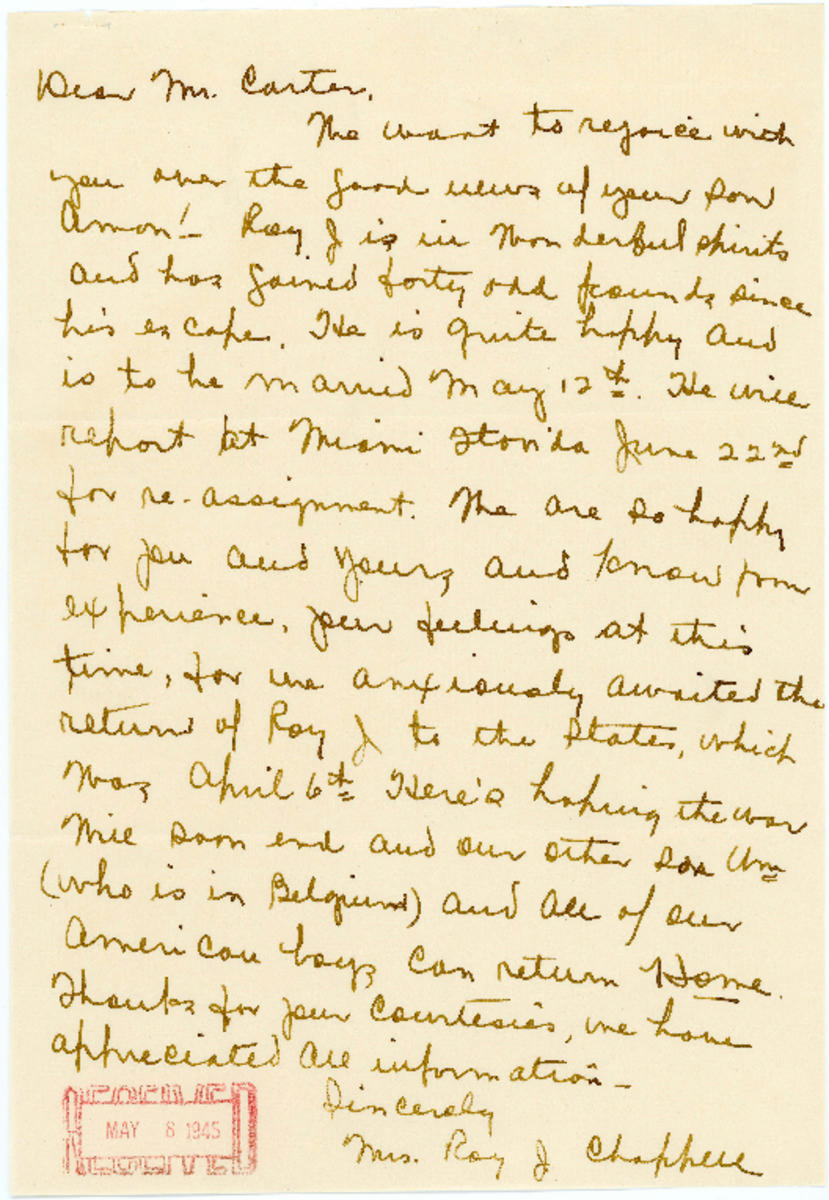 Dear Mr. Carter,
We want to rejoice with
you over the good news of your son
Amon! - Roy J is in wonderful spirits
and has gained forty odd pounds since
his escape. He is quite happy and
is to be married May 12th. He will
report at Miami Florida June 22nd
for re-assignment. We are so happy
for you and yours, and know from
experience, your feelings at this
time, for we anxiously awaited the
return of Roy J to the States, which
was April 6th Here's hoping the war
will soon end and our other son Wm
(who is in Belgium) and all of our
American boys can return Home.
Thanks for your courtesies, we have
appreciated all information -
Sincerely
Mrs. Roy J. Chappell
MAY 8 1945